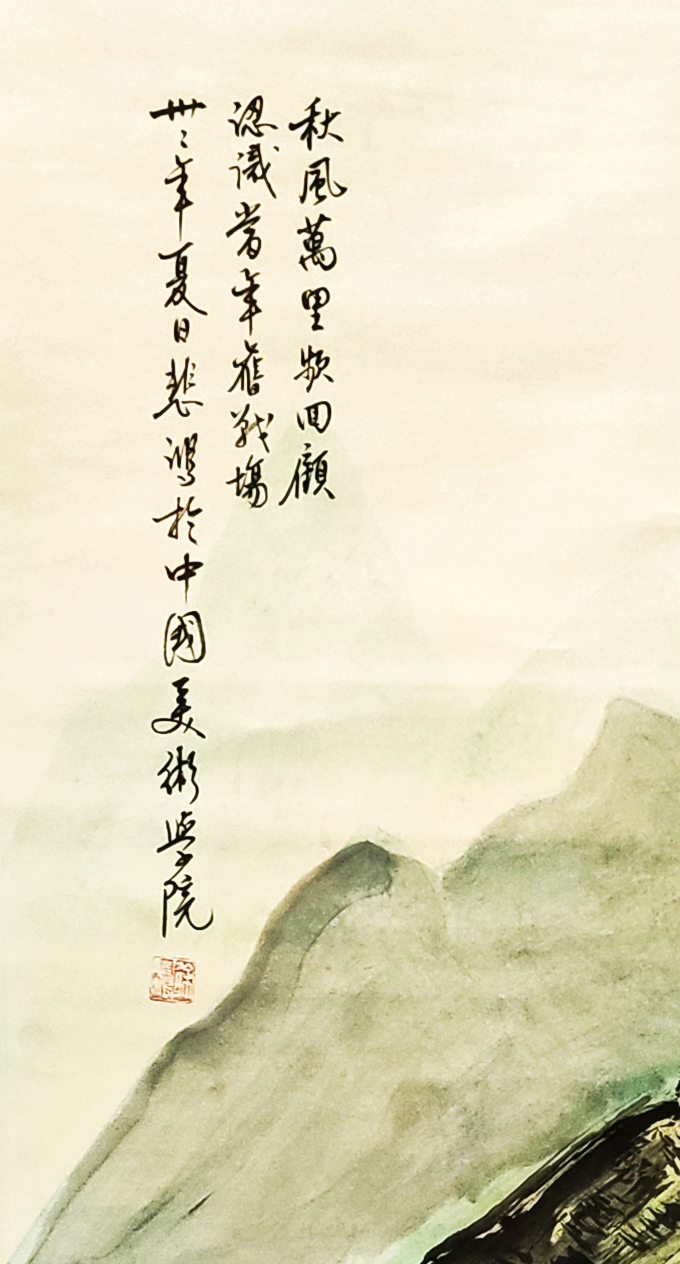 秋風萬里頻回顧
認識當年舊戰場
卅二年夏日悲鴻於中國美術學院